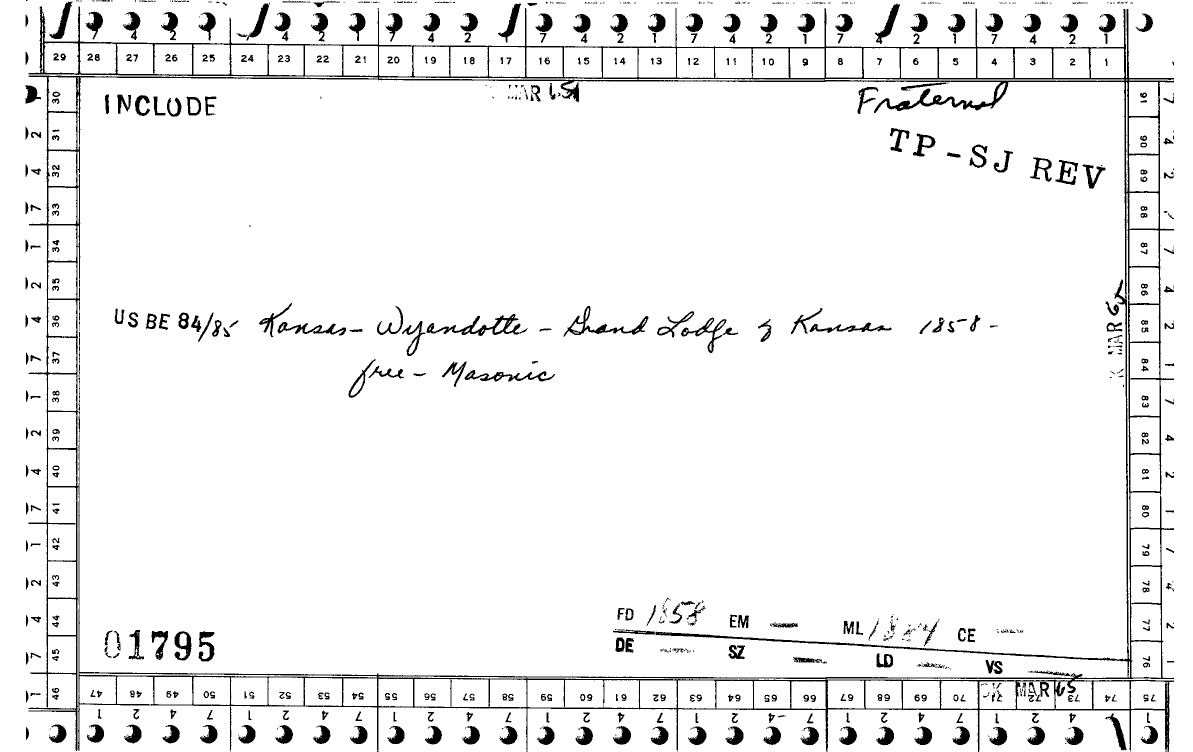 7 4 2 1 7 4 2 1 7 4 2 1 7 4 2 1 7 4 2 1 7 4 2 1 7 4 2 1
29 28 27 26 25 24 23 22 21 20 19 18 17 16 15 14 13 12 11 10 9 8 7 6 5 4 3 2 1
INCLUDE
MAR 65
Fraternal
TP-SJ REV
US BE 84/85 Kansas- Wyandotte - Grand Lodge of Kansas 1858-
free- Masonic
OK MAR 65
FD 1858 EM — ML 1884 CE —
DE — SZ — LD — VS —
01795
OK MAR 65
30 31 32 33 34 35 36 37 38 39 40 41 42 43 44 45 46
91 90 89 88 87 86 85 84 83 82 81 80 79 78 77 76 75
47 48 49 50 51 52 53 54 55 56 57 58 59 60 61 62 63 64 65 66 67 68 69 70 71 72 73 74
1 2 4 7 1 2 4 7 1 2 4 7 1 2 4 7 1 2 4 7 1 2 4 7 1 2 4